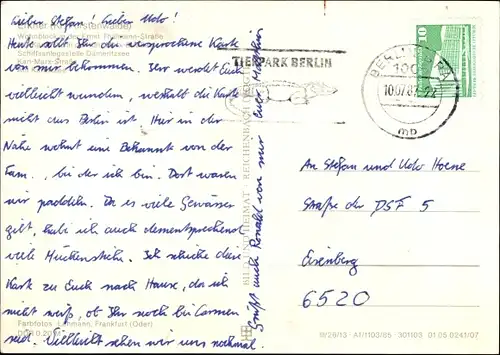 Lieber Stefan! Lieber Udo!
Heute sollt Ihr die versprochene Karte
von mir bekommen. Ihr werdet Euch
vielleicht wundern, weshalb die Karte
nicht aus Berlin ist. Hier in der
Nähe wohnt eine Bekannte von der
Fam., bei der ich bin. Dort waren
wir paddeln. Da es viele Gewässer
gibt, hab ich auch dementsprechend
viele Mückenstiche. Ich schicke diese
Karte zu Euch nach Hause, da ich
nicht weiß, ob Ihr noch bei Carmen
seid. Vielleicht sehen wir uns nochmal.
Grüßt mir Ronald von mir Euer
Wohnblock in der Ernst-Thälmann-Straße
Schiffsanlegestelle Dämeritzsee
Karl-Marx-Straße
Farbfotos: Lehmann, Frankfurt (Oder)
BILD UND HEIMAT REICHENBACH
TIERPARK BERLIN
BERLIN
10.07.87
mp
10
An Stefan und Udo Hoene
Straße der DSF 5
Eisenberg
6520
B/26/13 A1/1103/85 301103 01 05 0241/07